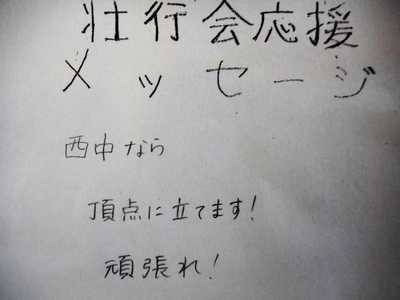 壮行会応援
メッセージ
西中なら
頂点に立てます!
頑張れ!